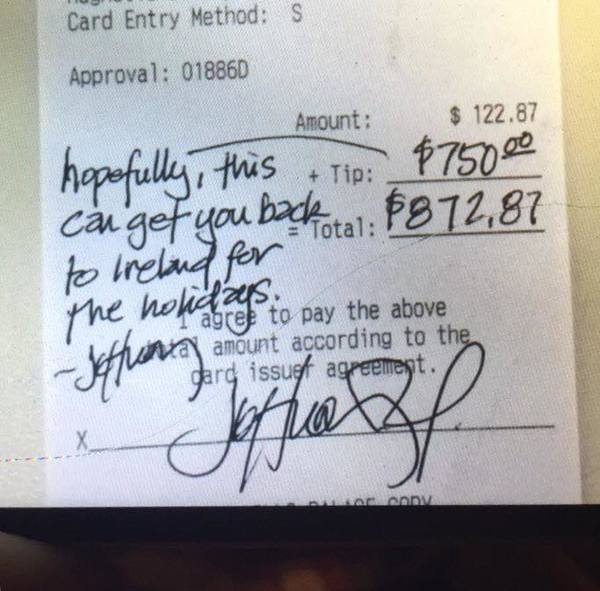 Card Entry Method: S
Approval: 01886D
Amount: $ 122.87
+ Tip: $750.00
= Total: $872.87
hopefully, this
can get you back
to Ireland for
the holidays.
I agree to pay the above
total amount according to the
card issuer agreement.
X
PALACE COPY